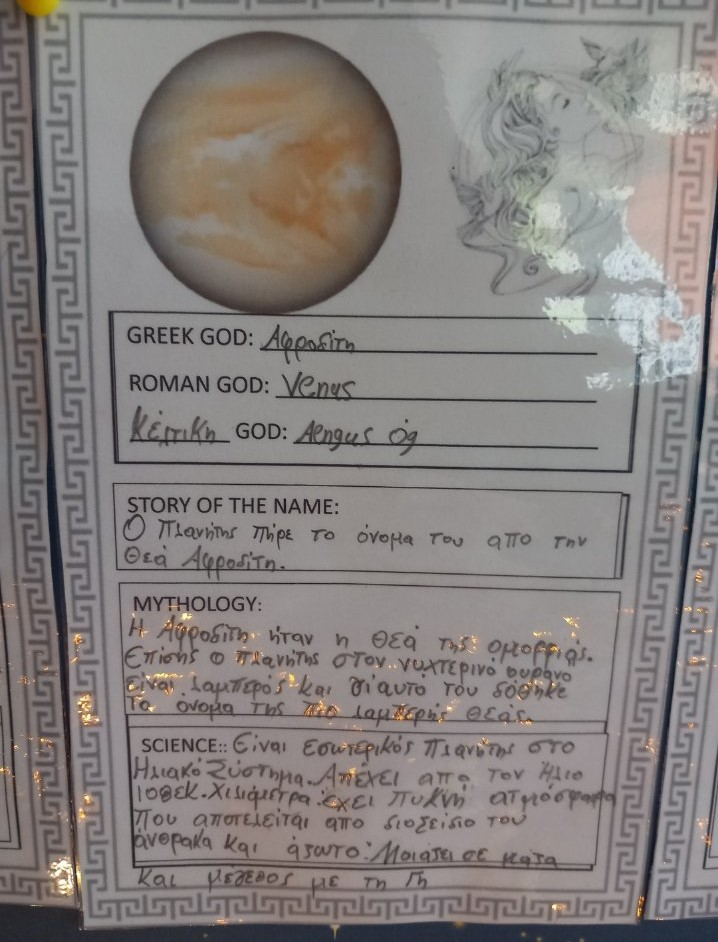 GREEK GOD: Αφροδίτη
ROMAN GOD: Venus
Κέλτικη GOD: Aengus óg
STORY OF THE NAME:
Ο Πλανήτης πήρε το όνομα του απο την
Θεά Αφροδίτη.
MYTHOLOGY:
Η Αφροδίτη ήταν η θεά της ομορφιάς.
Επίσης ο πλανήτης στον νυχτερινό ουρανο
είναι λαμπερός και γι'αυτο του δόθηκε
το ονομα της πιο λαμπερής θεάς.
SCIENCE:: Είναι Εσωτερικός Πλανήτης στο
Ηλιακό Σύστημα. Απέχει απο τον Ήλιο
108εκ. Χιλιόμετρα. Έχει πυκνή ατμόσφαιρα
που αποτελείται απο διοξείδιο του
άνθρακα και άζωτο. Μοιάζει σε μάζα
και μέγεθος με τη Γη